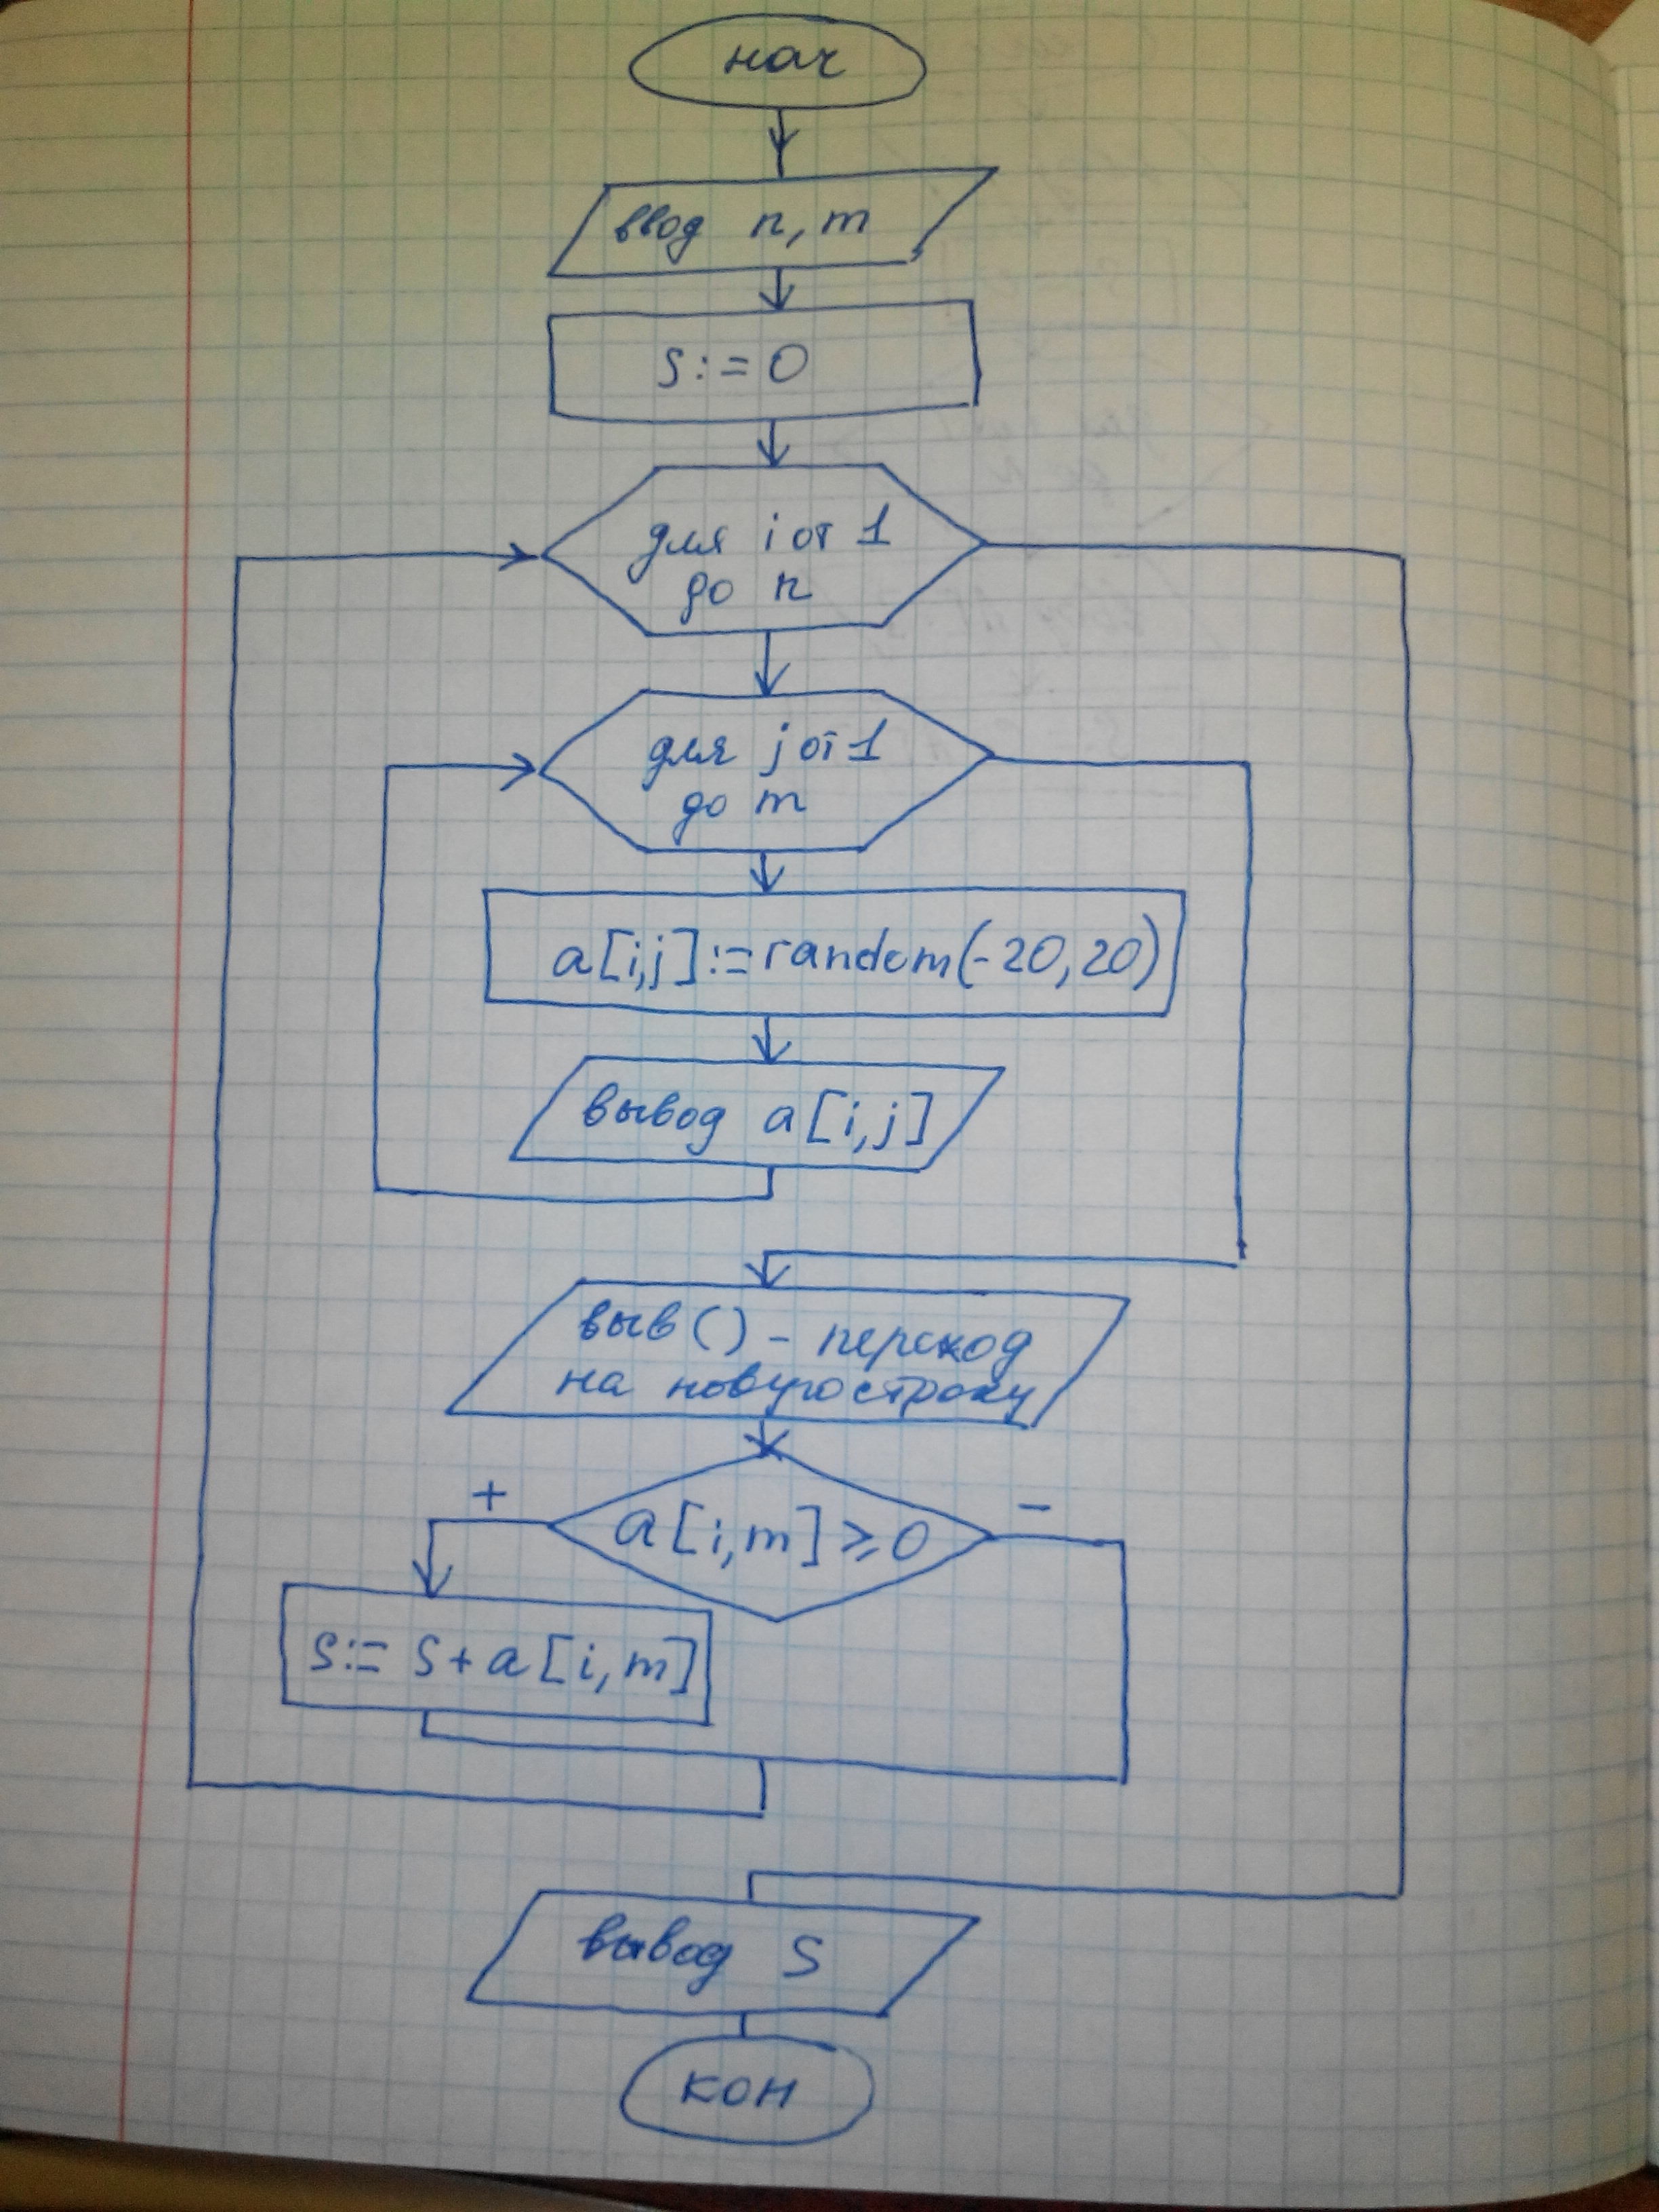 нач
ввод n, m
S:=0
для i от 1
до n
для j от 1
до m
a[i,j]:=random(-20,20)
вывод a[i,j]
выв() - переход
на новую строку
+
-
a[i,m]≥0
S:= S+a[i,m]
вывод S
кон